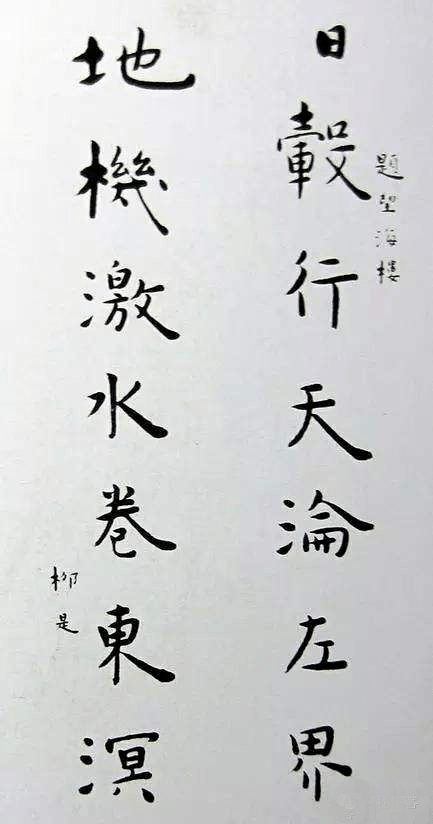 題望海樓
日轂行天淪左界
地機激水卷東溟
柳是